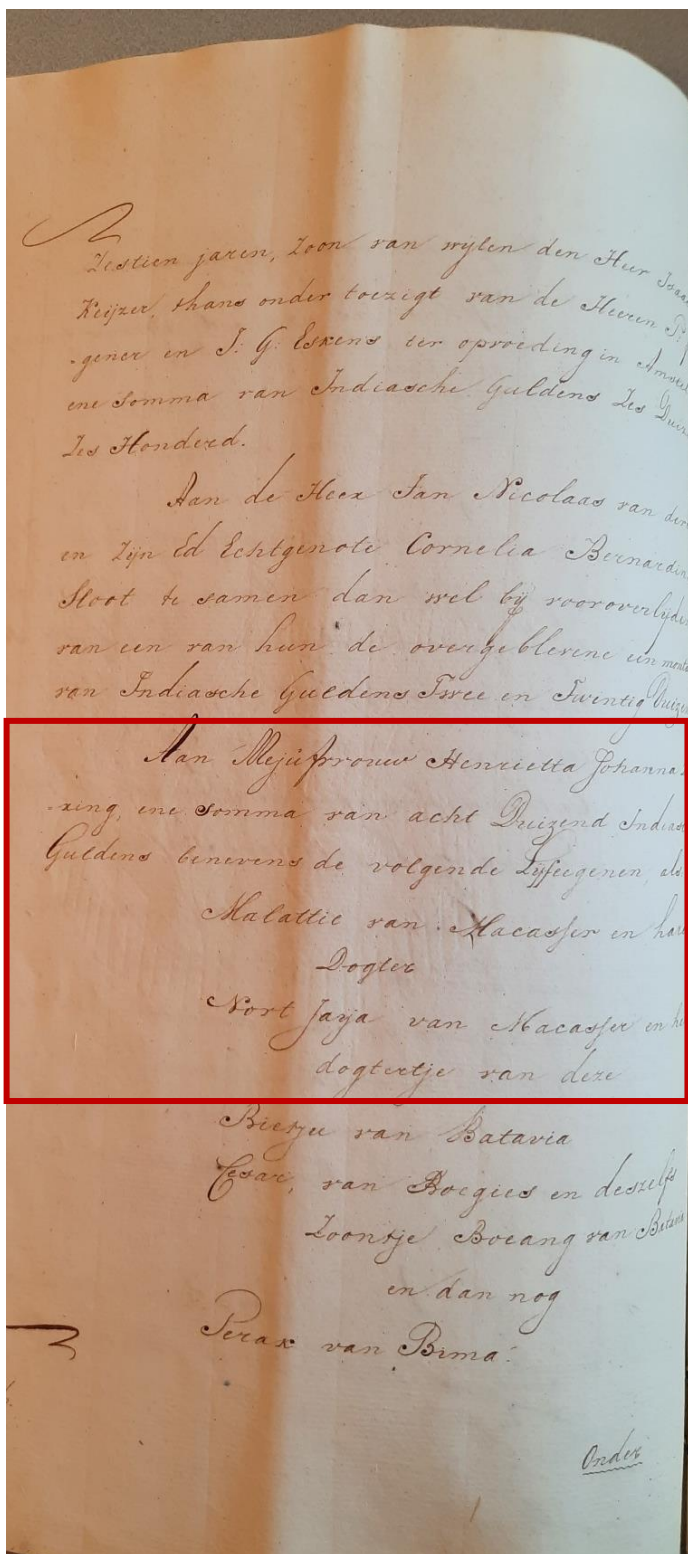 Zestien jaren, Zoon van wylen den Heer Isaac
Keijzer, thans onder toezigt van de Heeren P:
-gener en J: G: Eskens ter opvoeding in Amste
ene Somma van Indiasche Guldens Zes Duiz
Zes Honderd.
Aan de Heer Jan Nicolaas van der
en Zijn Ed Echtgenote Cornelia Bernardin
Sloot te samen dan wel bij vooroverlyde
van een van hun de overgeblevene een
van Indiasche Guldens Twee en Twintig Duize
Aan Mejufvrouw Henrietta Johanna
-xing, ene Somma van acht Duizend Indias
Guldens benevens de volgende Lyfeegenen, als
Malattie van Macasser en hare
Dogter
Nort Jaya van Macasser en he
dogtertje van deze
Bietju van Batavia
Cesar, van Boegies en deszelfs
Zoontje Boeang van Batavia
en dan nog
Perak van Bima.
Onder